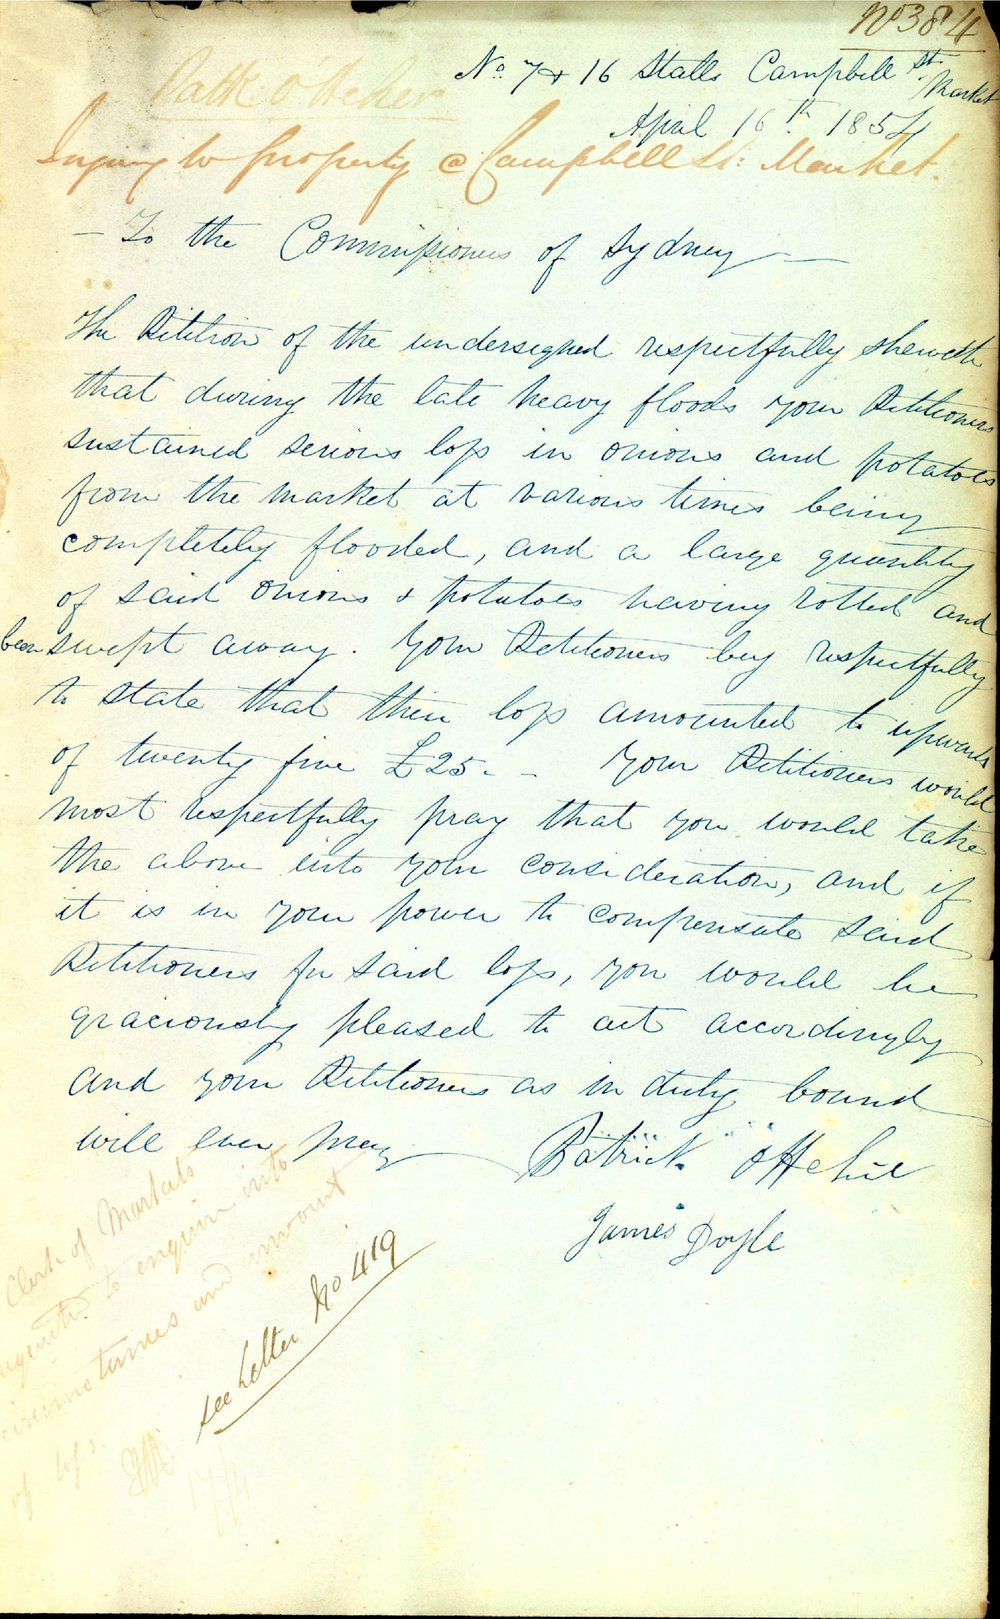 No 384
No. 7 & 16 Stalls Campbell St. Market
April 16th 1854
Patk O'Heher
Injury to property @ Campbell St: Market.
— To the Commissioners of Sydney —
The Petition of the undersigned respectfully sheweth
that during the late heavy floods your Petitioners
sustained serious loss in onions and potatoes
from the market at various times being
completely flooded, and a large quantity
of said onions & potatoes having rotted and
been swept away. Your Petitioners beg respectfully
to state that their loss amounted to upwards
of twenty five £25. – Your Petitioners would
most respectfully pray that you would take
the above into your consideration, and if
it is in your power to compensate said
Petitioners for said loss, you would be
graciously pleased to act accordingly
and your Petitioners as in duty bound
will ever pray
Patrick O'Hehir
James Doyle
Clerk of Markets
requested to enquire into
circumstances and amount
of loss.
17/4
See Letter No 419